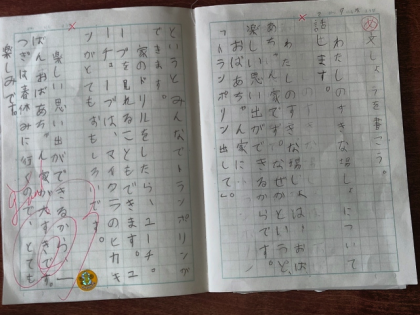 文しょうを書こう。
わたしのすきな場しょについて
話します。
わたしのすきな場しょは、おば
あちゃん家です。なぜかというと、
楽しい思い出ができるからです。
おばあちゃん家に
「トランポリン出して」
というと みんなでトランポリンが
できます。
家のドリルをしたら、ユーチュ
ーブを見れることもできます。ユ
ーチューブは、マイクラのヒカキ
ンがとてもおもしろいです。
楽しい思い出ができるから、
おばあちゃん家が大すきです。
つぎは春休みに行くので、とても
楽しみです。